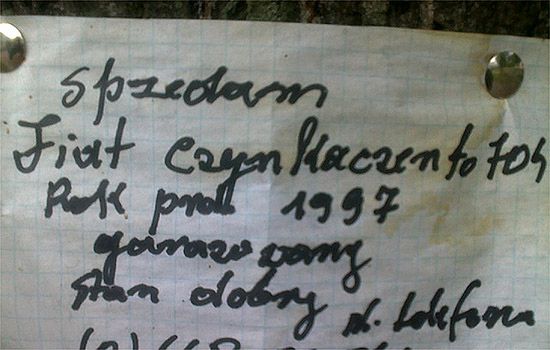 Sprzedam
Fiat Czynkłaczento 704
Rok prod 1997
garażowany
stan dobry
n. telefonu